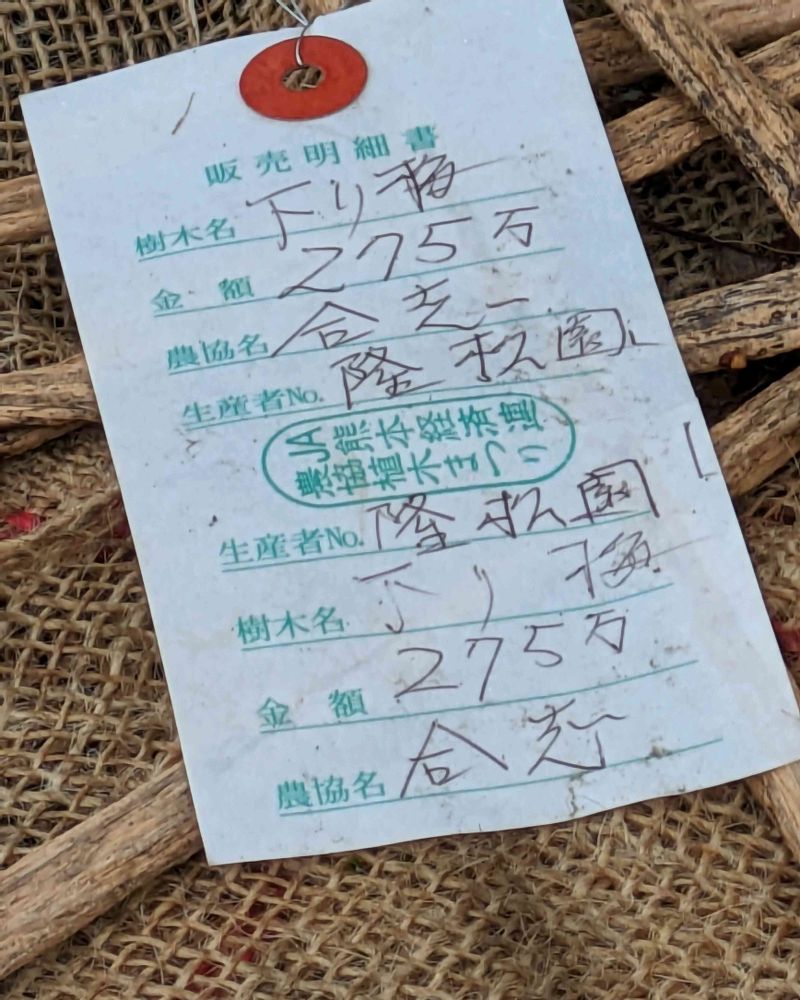 販売明細書
樹木名 下り梅
金額 275万
農協名 合志
生産者No. 隆松園
JA熊本経済連
農協植木まつり
生産者No. 隆松園
樹木名 下り梅
金額 275万
農協名 合志